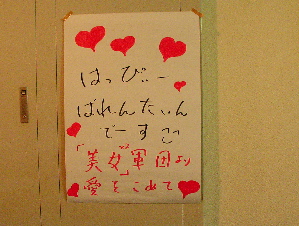 はっぴぃー
ばれんたいん
でーすこ
「美女」軍団より
愛をこめて